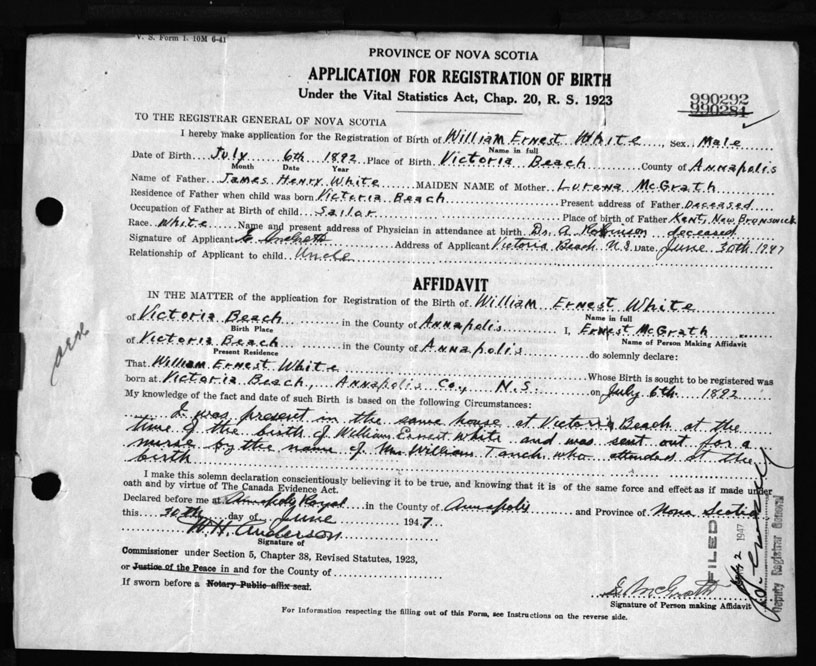 V. S. Form 1. 10M 6-41
PROVINCE OF NOVA SCOTIA
APPLICATION FOR REGISTRATION OF BIRTH
Under the Vital Statistics Act, Chap. 20, R. S. 1923
990292
990284
TO THE REGISTRAR GENERAL OF NOVA SCOTIA
I hereby make application for the Registration of Birth of William Ernest White Sex Male
Name in full
Date of Birth July 6th 1892 Place of Birth Victoria Beach County of Annapolis
Month Date Year
Name of Father James Henry White MAIDEN NAME of Mother Lorena McGrath
Residence of Father when child was born Victoria Beach Present address of Father Deceased
Occupation of Father at Birth of child Sailor Place of birth of Father Kent, New Brunswick
Race White Name and present address of Physician in attendance at birth Dr. A. Robinson deceased
Signature of Applicant E McGrath Address of Applicant Victoria Beach N.S. Date June 30th 1947
Relationship of Applicant to child Uncle
AFFIDAVIT
IN THE MATTER of the application for Registration of the Birth of William Ernest White
Name in full
of Victoria Beach in the County of Annapolis I, Ernest McGrath
Birth Place Name of Person Making Affidavit
of Victoria Beach in the County of Annapolis do solemnly declare:
Present Residence
That William Ernest White Whose Birth is sought to be registered was
born at Victoria Beach, Annapolis Co., N.S. on July 6th 1892
My knowledge of the fact and date of such Birth is based on the following Circumstances:
I was present in the same house at Victoria Beach at the
time of the birth of William Ernest White and was sent out for a
nurse by the name of Mrs William who attended at the
birth
I make this solemn declaration conscientiously believing it to be true, and knowing that it is of the same force and effect as if made under
oath and by virtue of The Canada Evidence Act.
Declared before me at Annapolis Royal in the County of Annapolis and Province of Nova Scotia
this 30th day of June 1947
W. H. Anderson
Signature of
Commissioner under Section 5, Chapter 38, Revised Statutes, 1923,
or Justice of the Peace in and for the County of
If sworn before a Notary Public affix seal.
E McGrath
Signature of Person making Affidavit
FILED
2 1947
Deputy Registrar General
For Information respecting the filling out of this Form, see Instructions on the reverse side.